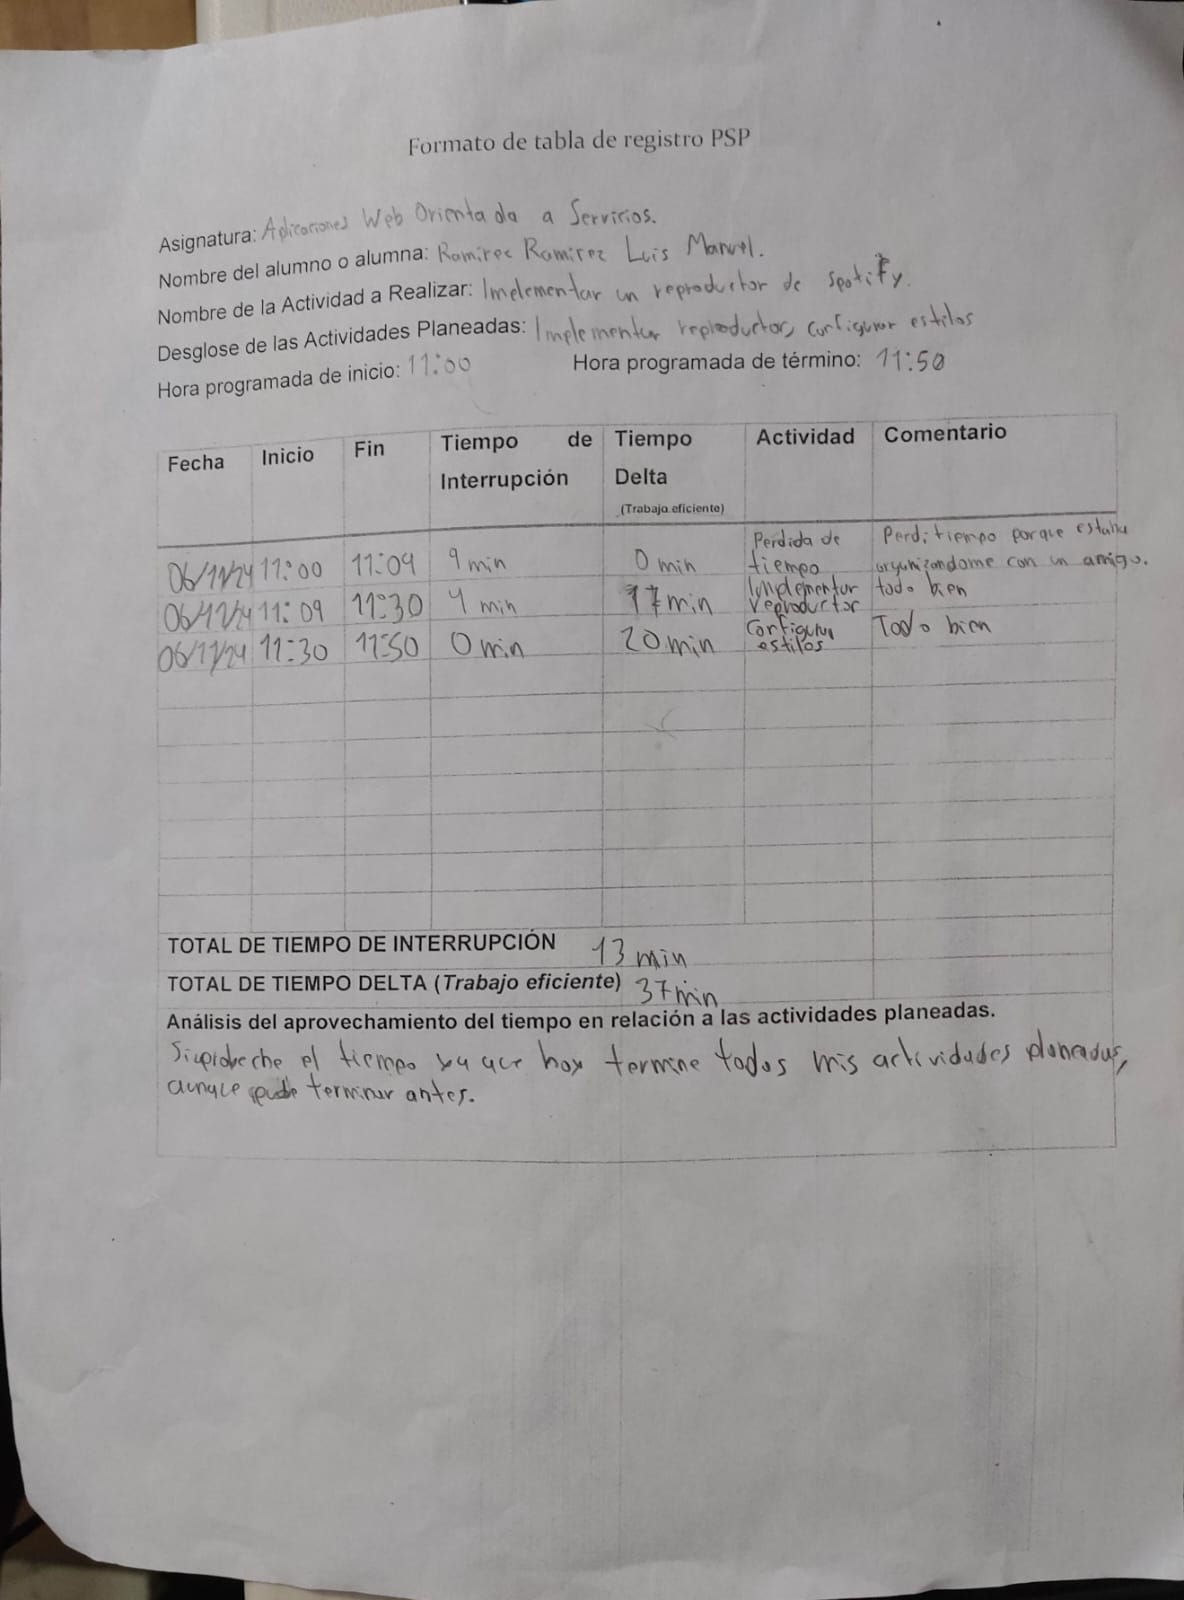 Formato de tabla de registro PSP
Asignatura: Aplicaciones Web Orientada a Servicios.
Nombre del alumno o alumna: Ramirez Ramirez Luis Manuel.
Nombre de la Actividad a Realizar: Imelementar un reproductor de spotify.
Desglose de las Actividades Planeadas: Implementar reproductor, configurar estilos
Hora programada de inicio: 11:00 Hora programada de término: 11:50
Fecha Inicio Fin Tiempo de Interrupción Tiempo Delta (Trabajo eficiente) Actividad Comentario
06/11/24 11:00 11:09 9 min 0 min Perdida de tiempo Perdi tiempo porque estaba organizandome con un amigo.
06/11/24 11:09 11:30 4 min 17 min Implementar reproductor todo bien
06/11/24 11:30 11:50 0 min 20 min Configurar estilos Todo bien
TOTAL DE TIEMPO DE INTERRUPCIÓN 13 min
TOTAL DE TIEMPO DELTA (Trabajo eficiente) 37 min
Análisis del aprovechamiento del tiempo en relación a las actividades planeadas.
Si aprobeche el tiempo ya que hoy termine todos mis actividades planeadas,
aunque pude terminar antes.